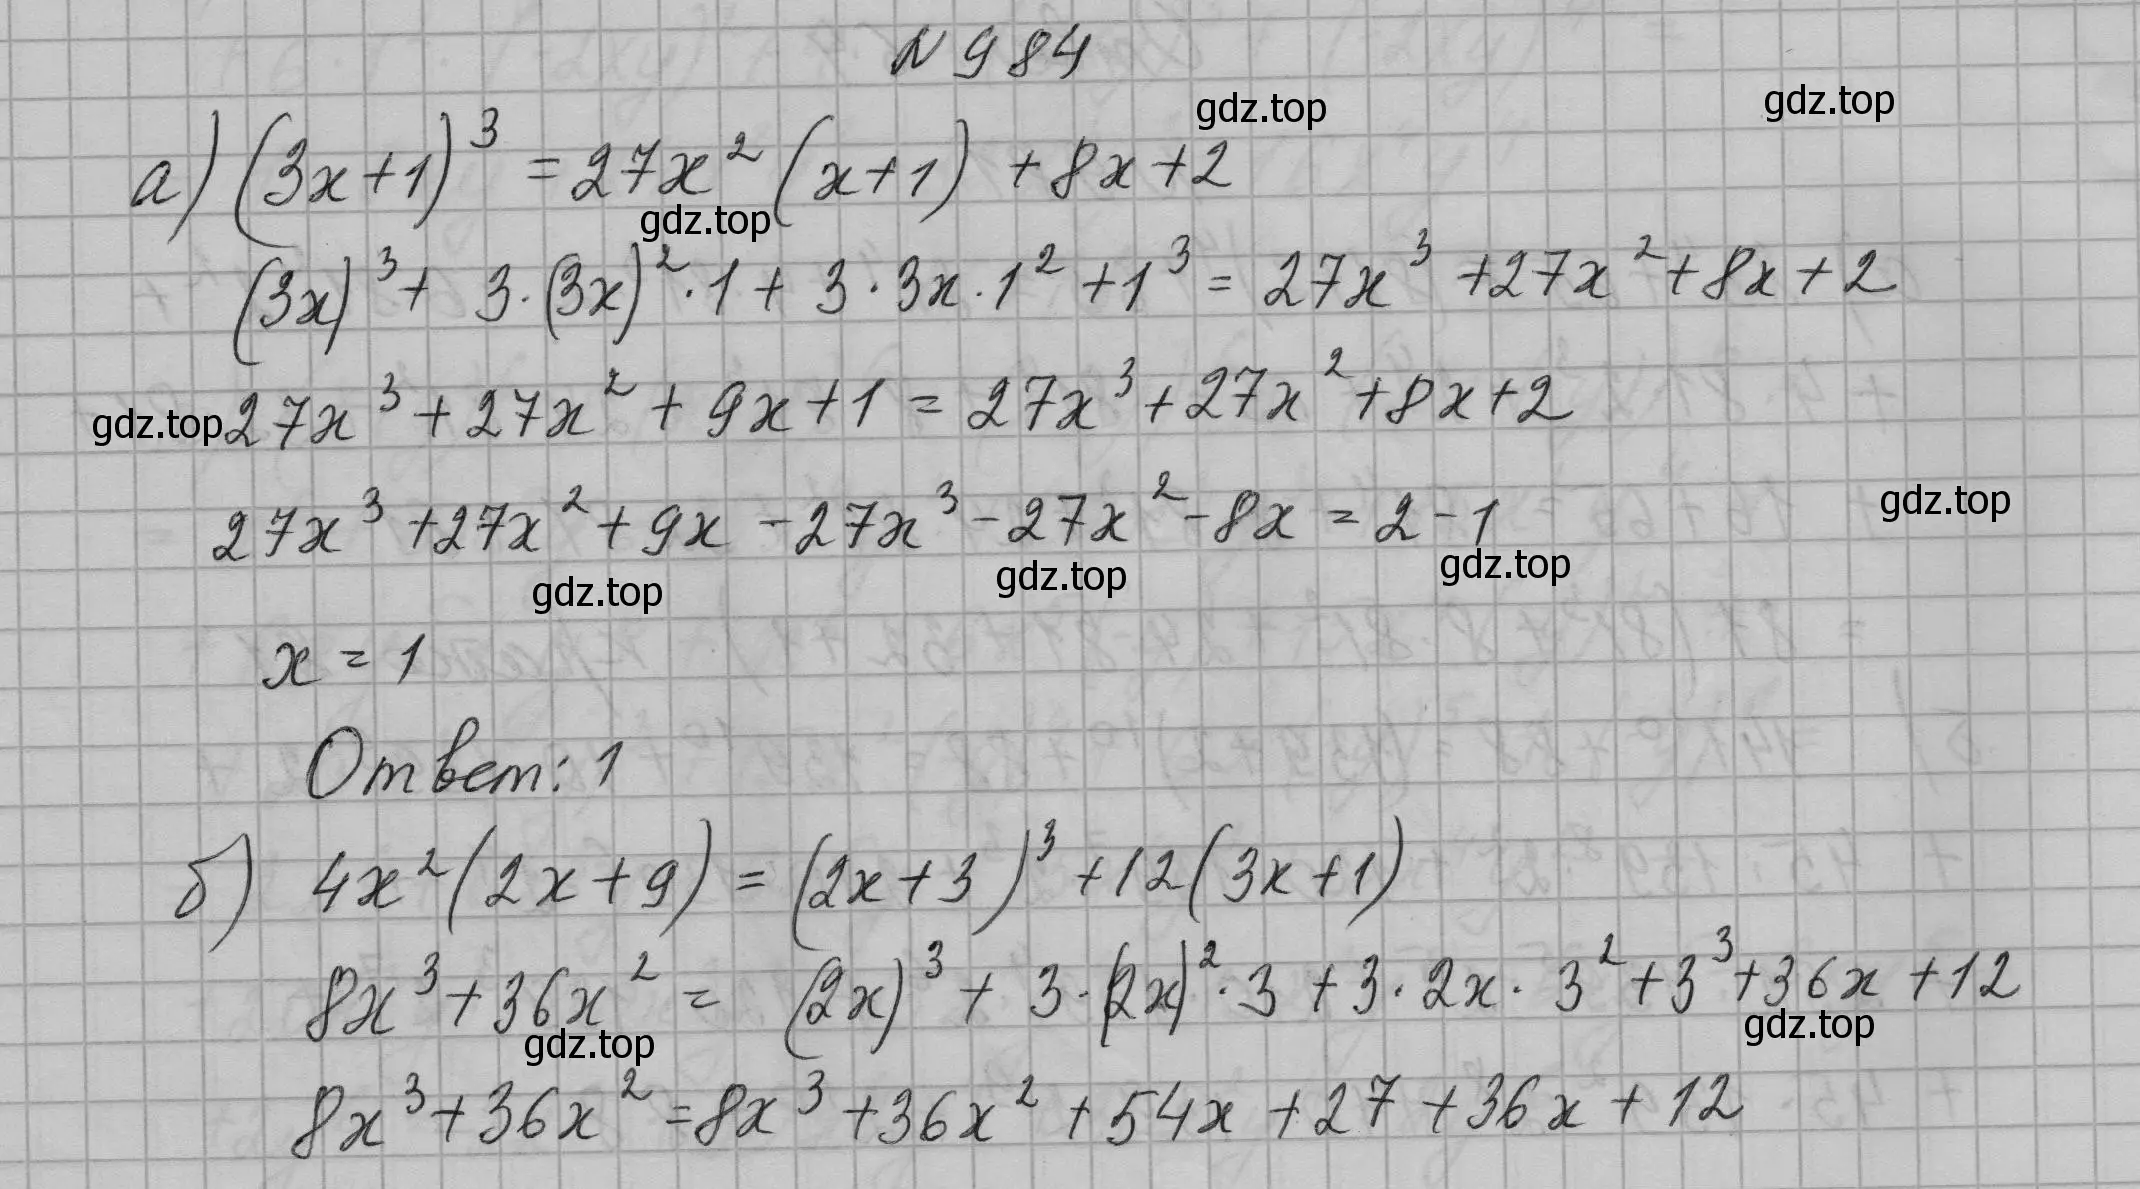 N 984
gdz.top
gdz.top
а) (3x+1)³ = 27x² (x+1) + 8x+2
gdz.top
(3x)³ + 3·(3x)²·1 + 3·3x·1² + 1³ = 27x³ + 27x² + 8x + 2
gdz.top
27x³ + 27x² + 9x + 1 = 27x³ + 27x² + 8x + 2
gdz.top
27x³ + 27x² + 9x - 27x³ - 27x² - 8x = 2 - 1
gdz.top
gdz.top
gdz.top
x = 1
Ответ: 1
б) 4x² (2x+9) = (2x+3)³ + 12(3x+1)
8x³ + 36x² = (2x)³ + 3·(2x)²·3 + 3·2x·3² + 3³ + 36x + 12
gdz.top
gdz.top
8x³ + 36x² = 8x³ + 36x² + 54x + 27 + 36x + 12